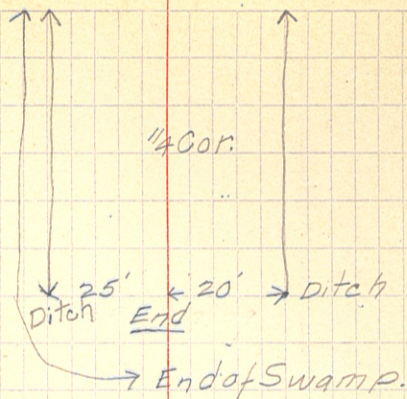 1/4 Cor.
25' 20' Ditch
Ditch End
End of Swamp.